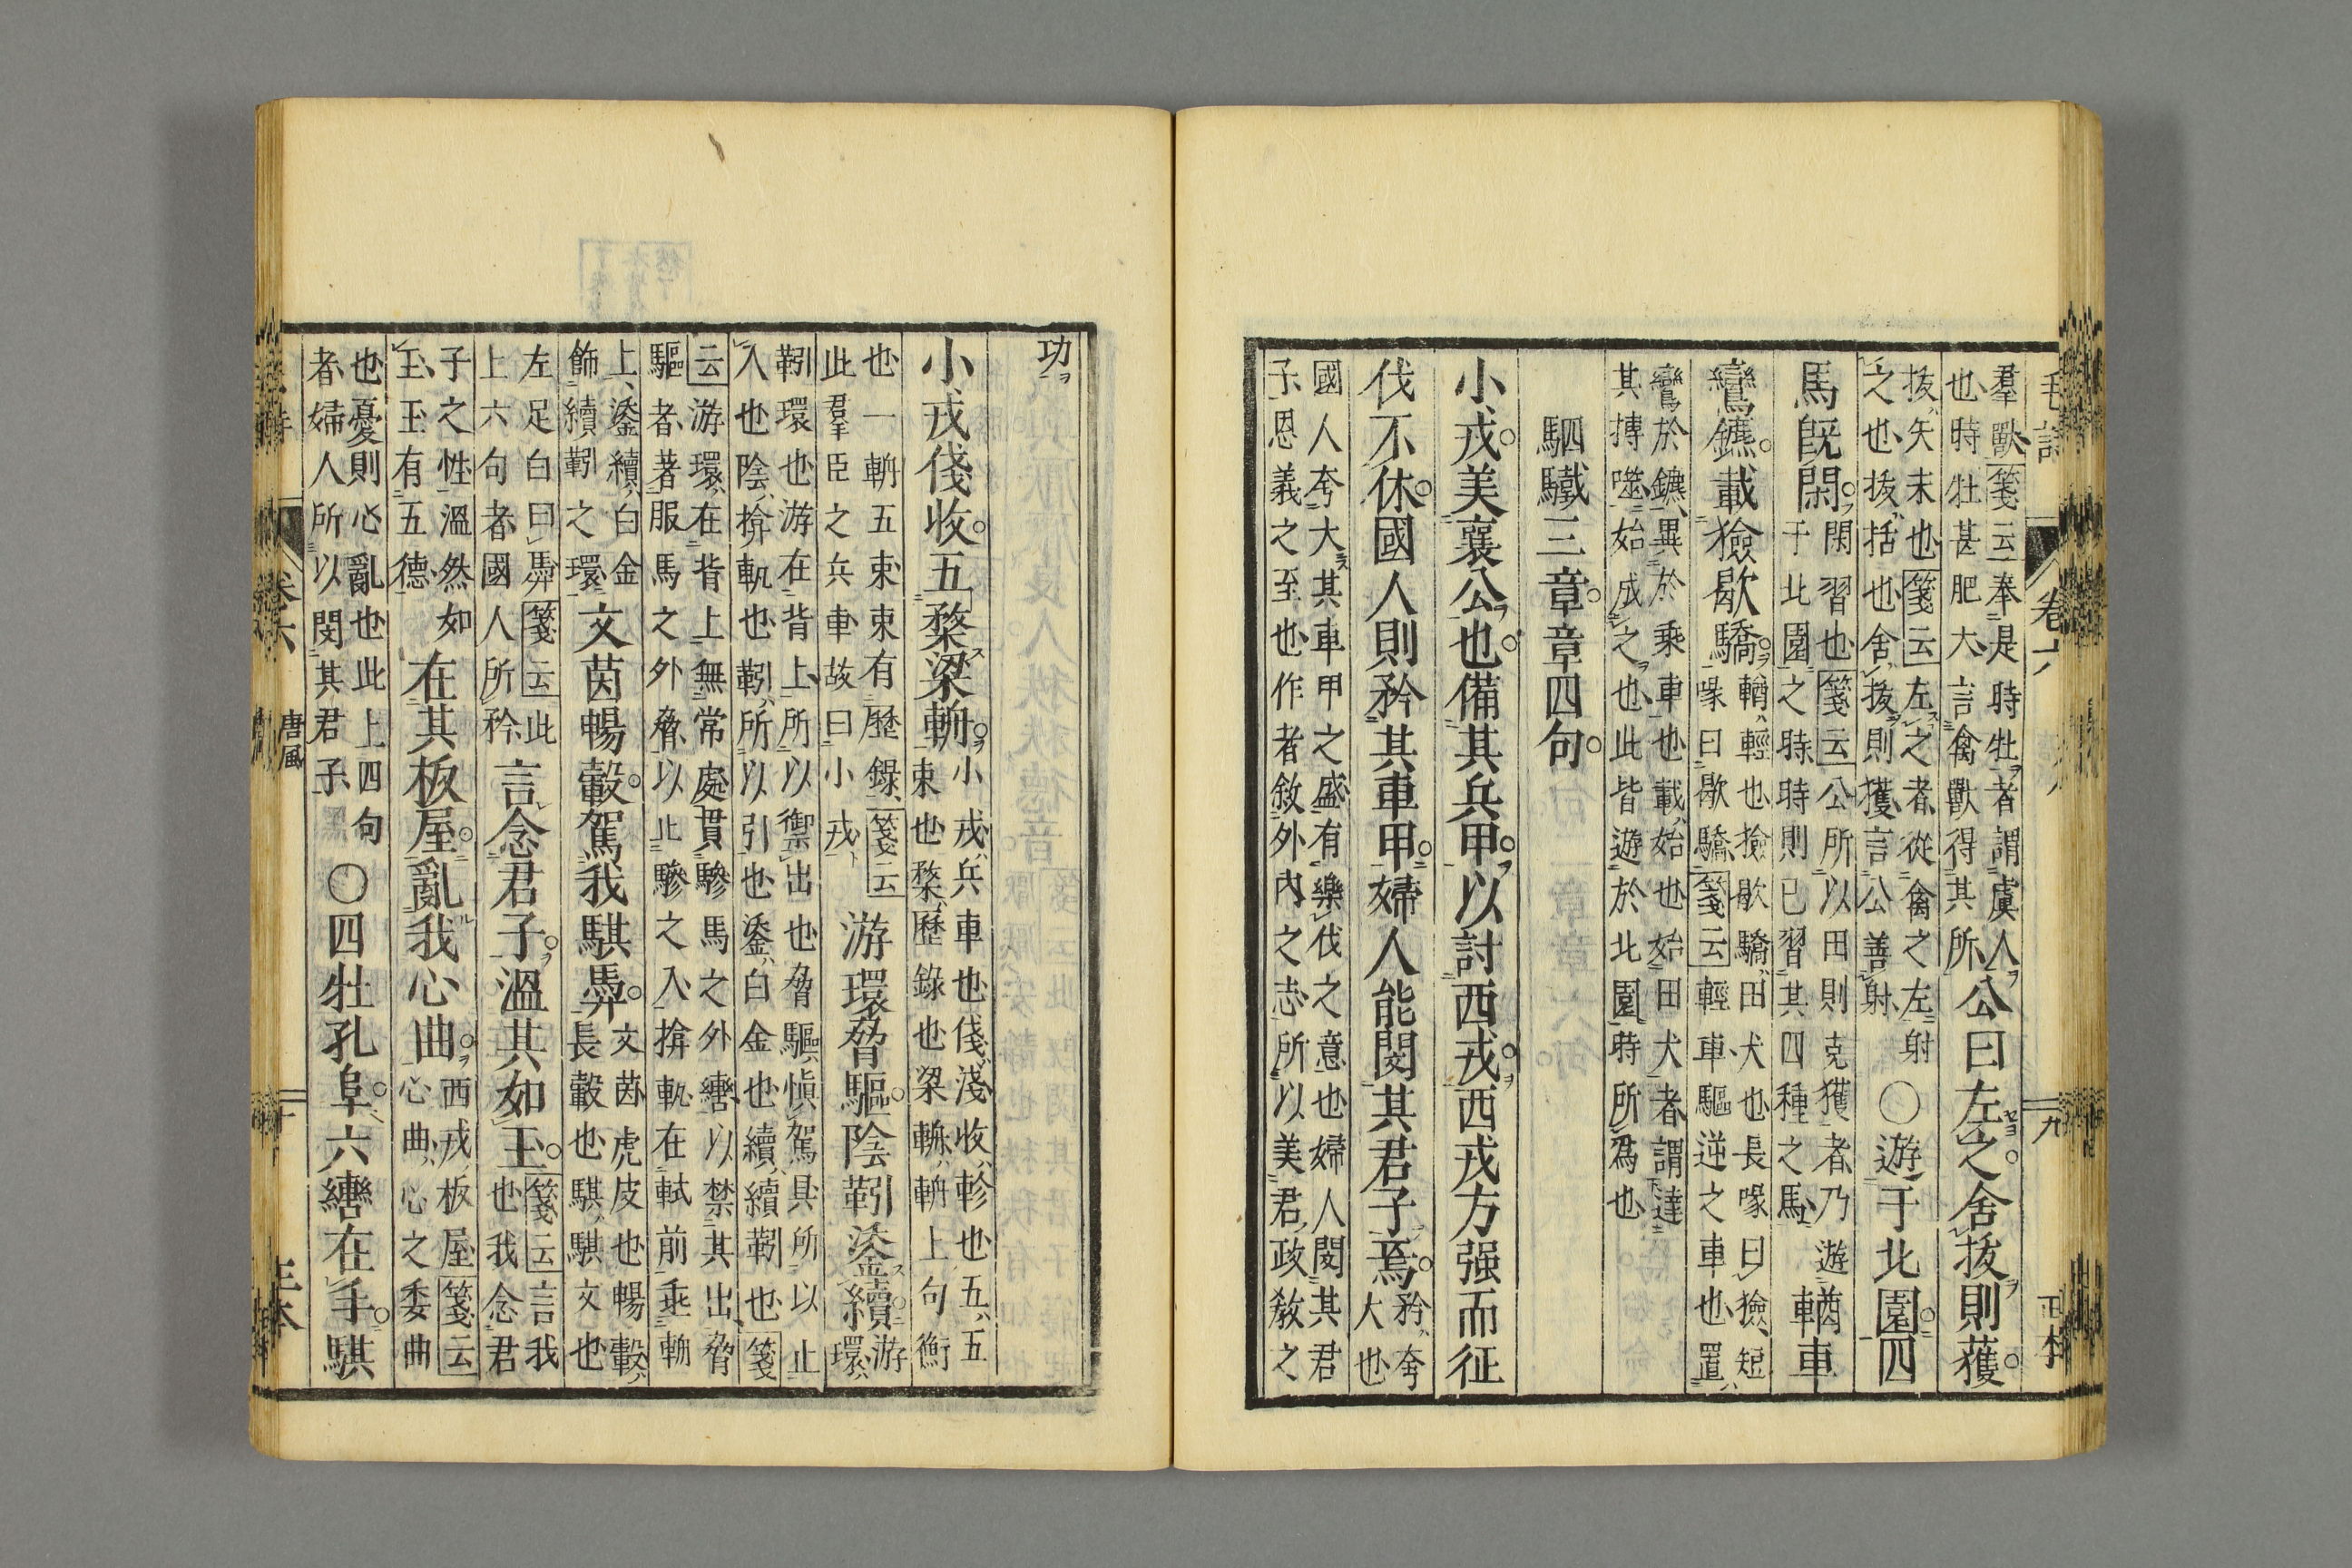 毛詩 卷六 九 正本
羣獸箋云奉是時牡者謂虞人
也時牡甚肥大言禽獸得其所
公曰左之舍拔則獲
拔矢末也箋云左之者從禽之左射
之也拔括也舍拔則獲言公善射
○遊于北園四
馬旣閑
閑習也箋云公所以田則克獲者乃遊
于北園之時時則已習其四種之馬
輶車
鸞鑣載獫歇驕
輶輕也獫歇驕田犬也長喙曰獫短
喙曰歇驕箋云輕車驅逆之車也置
鸞於鑣異於乘車也載始也始田犬者謂達
其搏噬始成之也此皆遊於北園時所爲也
駟驖三章章四句
小戎美襄公也備其兵甲以討西戎西戎方强而征
伐不休國人則矜其車甲婦人能閔其君子焉
矜夸
大也
國人夸大其車甲之盛有樂伐之意也婦人閔其君
子恩義之至也作者敘外內之志所以美君政敎之
功
小戎俴收五楘梁輈
小戎兵車也俴淺收軫也五五
束也楘歷錄也梁輈輈上句衡
也一輈五束束有歷錄箋云
此羣臣之兵車故曰小戎
游環脅驅陰靷鋈續
游
環
靷環也游在背上所以禦出也脅驅愼駕具所以止
入也陰揜軓也靷所以引也鋈白金也續續靷也箋
云游環在背上無常處貫驂馬之外轡以禁其出脅
驅者著服馬之外脅以止驂之入揜軓在軾前垂輈
上鋈續白金
飾續靷之環
文茵暢轂駕我騏馵
文茵虎皮也暢轂
長轂也騏騏文也
左足白曰馵箋云此
上六句者國人所矜
言念君子溫其如玉
箋云言我
也我念君
子之性溫然如
玉玉有五德
在其板屋亂我心曲
西戎板屋箋云
心曲心之委曲
也憂則心亂也此上四句
者婦人所以閔其君子
○四牡孔阜六轡在手騏
卷六 唐風 十